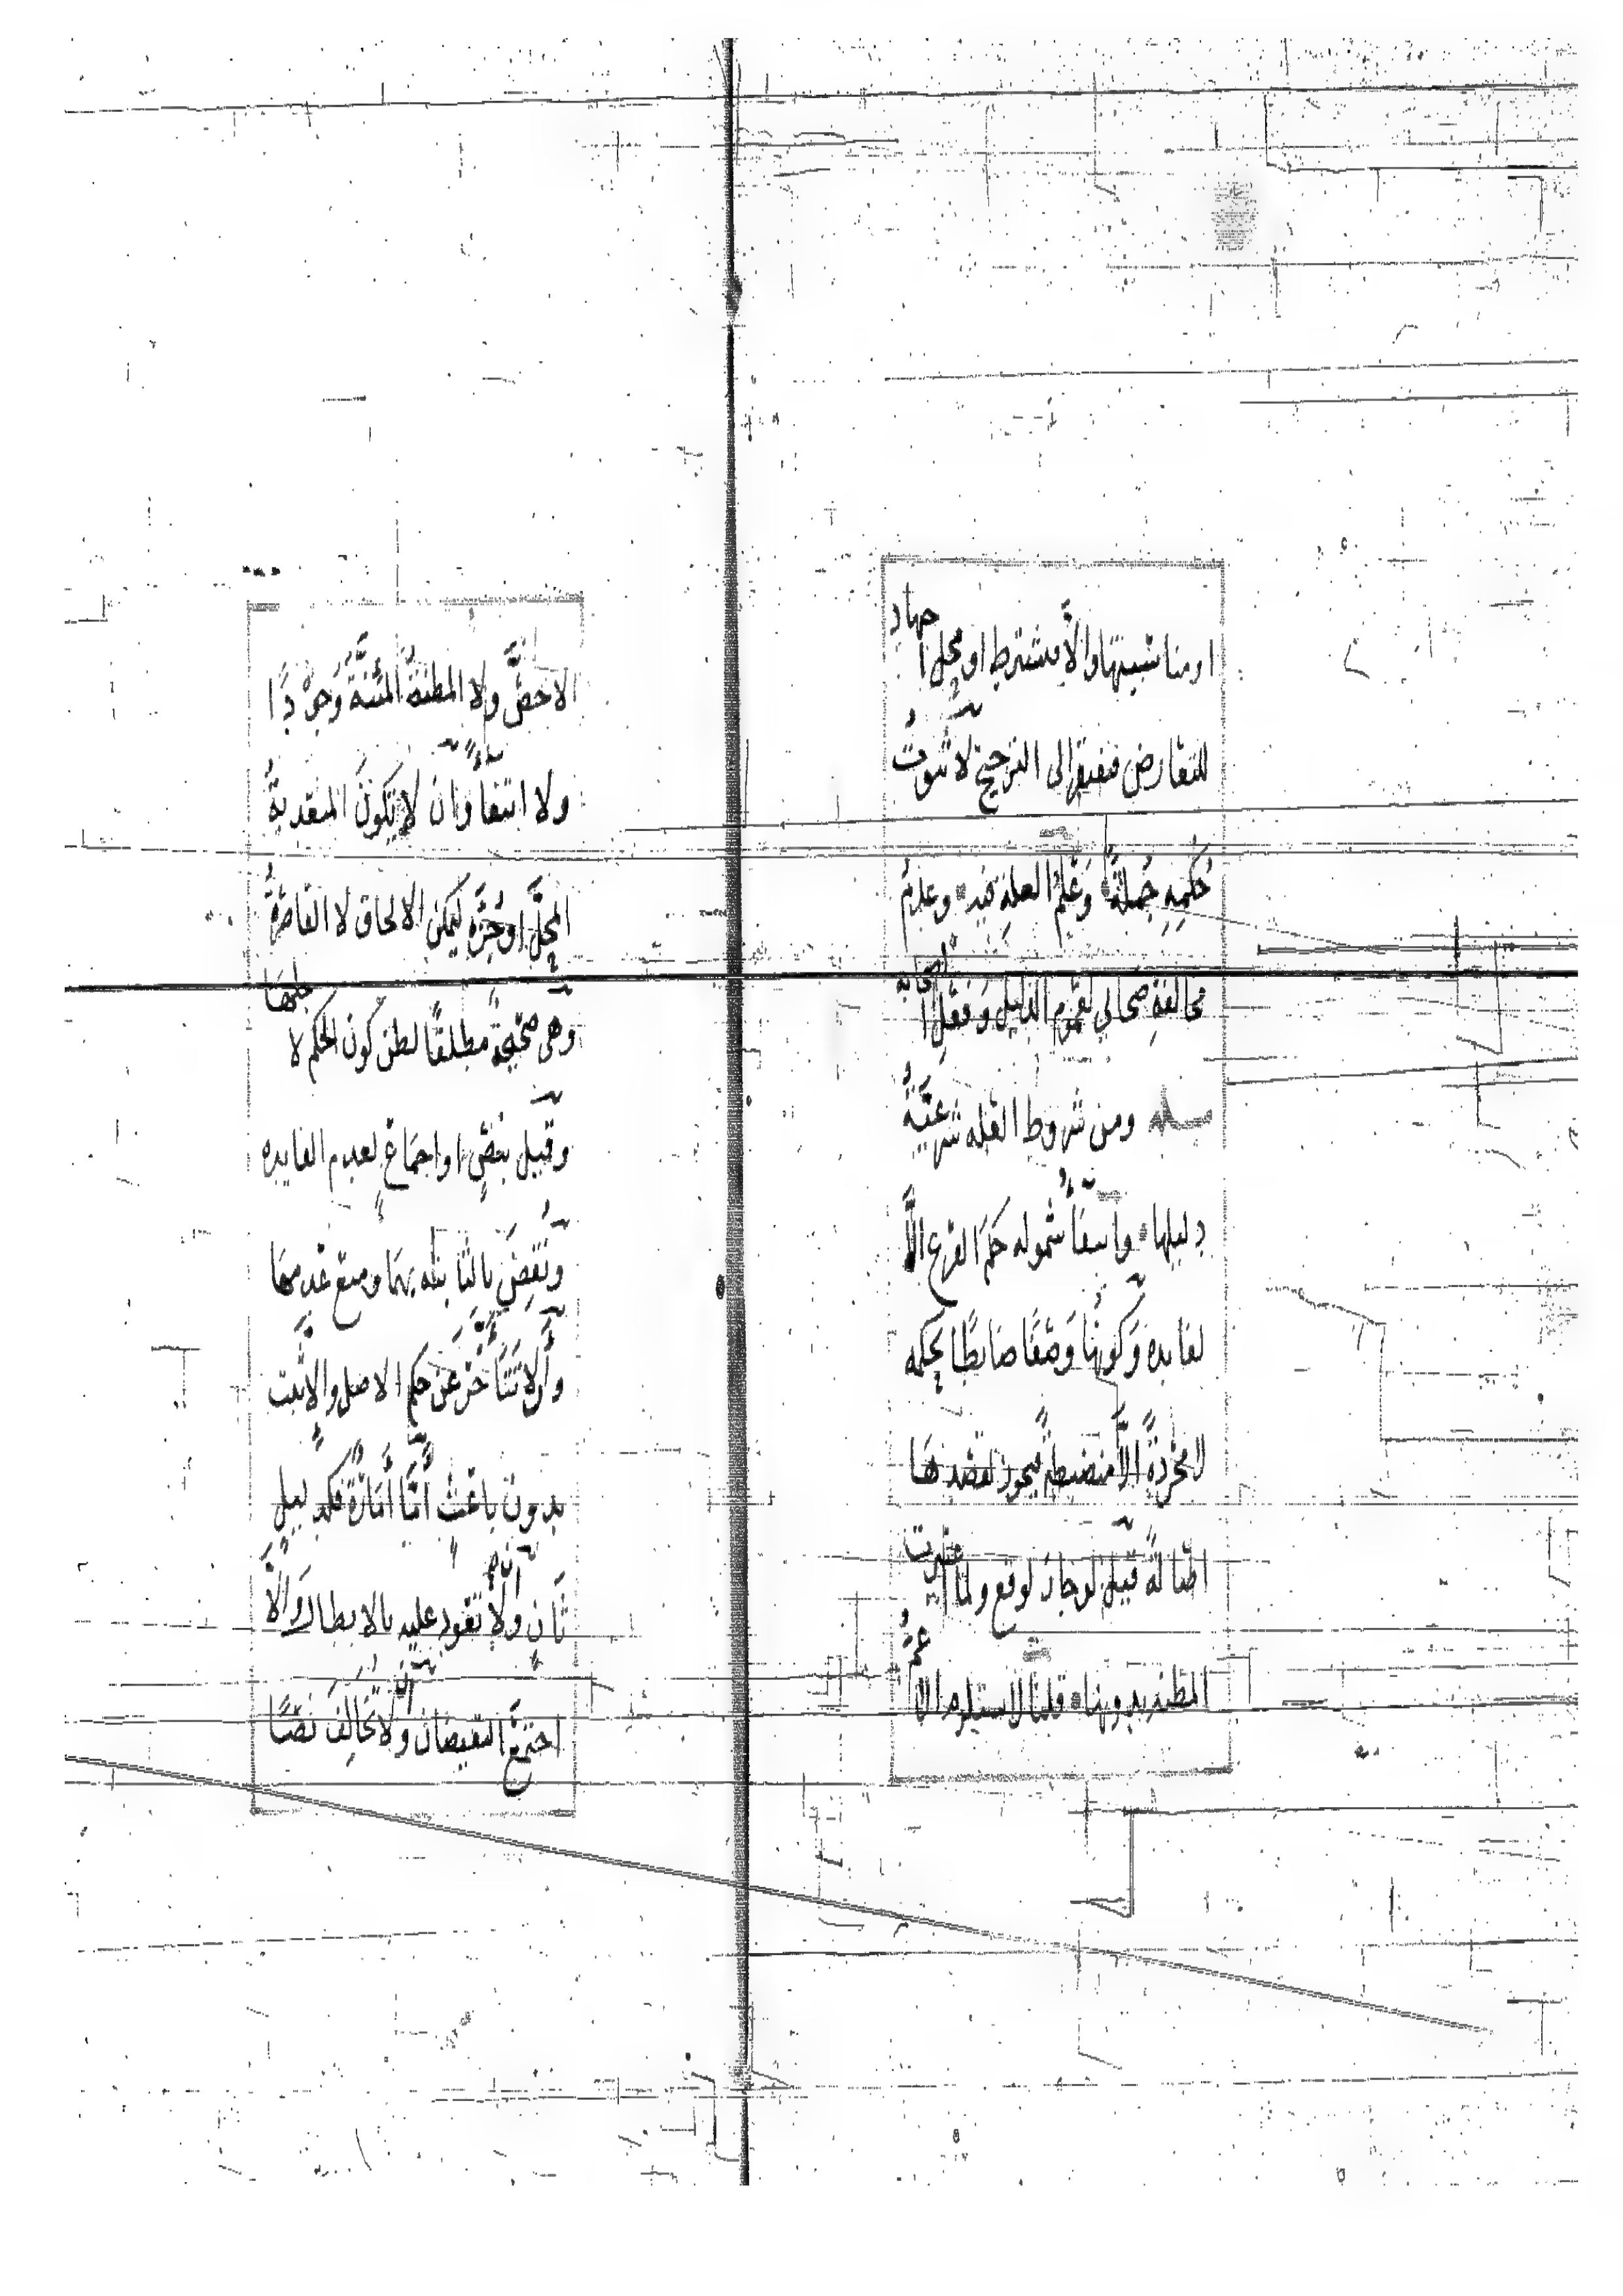 او مناسبتها والا فمشترط او محل اجتهاد
للتعارض فيفتقر الى الترجيح لا ثبوت
حكمه جملةً وعلم العلة فيه وعدم
مخالفة صحابي لعموم الدليل وفعل اصحابه
ومن شروط العله شرعية
دليلها وانتفا شموله حكم الفرع الا
لفايده وكونها وصفا ضابطا لحكمه
لا مجردة الا منضبطة فيجوز لقصدها
اصالة قيل لو جاز لوقع ولما اعتبرت
المظنه بدونها قلنا لا يستلزم الاعم
الاخص ولا المظنة المئنة وجودا
ولا انتفا وان لا تكون المتعدية
المحل او جزه ليمكن الالحاق لا القاصرة
وهي صحيحة مطلقا لظن كون الحكم لاجلها
وقيل بنص او اجماع لعدم الفايده
ونقض بالثابته بهما ومنع عدمها
وان لا تتاخر عن حكم الاصل والا ثبت
بدون باعث اما امارة فكدليل
ثان وان لا تعود عليه بالابطال والا
اجتمع النقيضان وان لا تخالف نصا